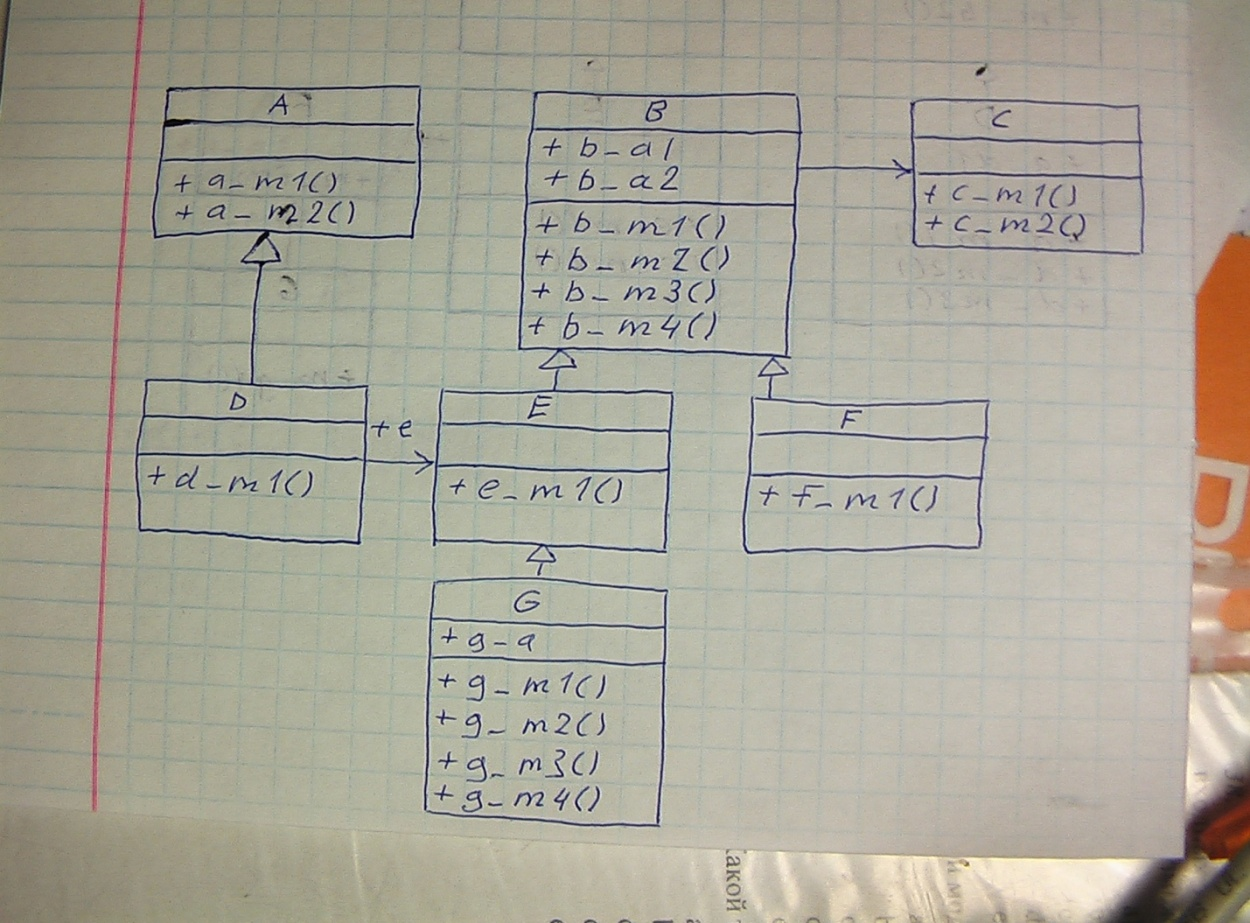 A
+ a_m1()
+ a_m2()
B
+ b_a1
+ b_a2
+ b_m1()
+ b_m2()
+ b_m3()
+ b_m4()
C
+ c_m1()
+ c_m2()
D
+ d_m1()
+ e
E
+ e_m1()
F
+ F_m1()
G
+ g_a
+ g_m1()
+ g_m2()
+ g_m3()
+ g_m4()
какой